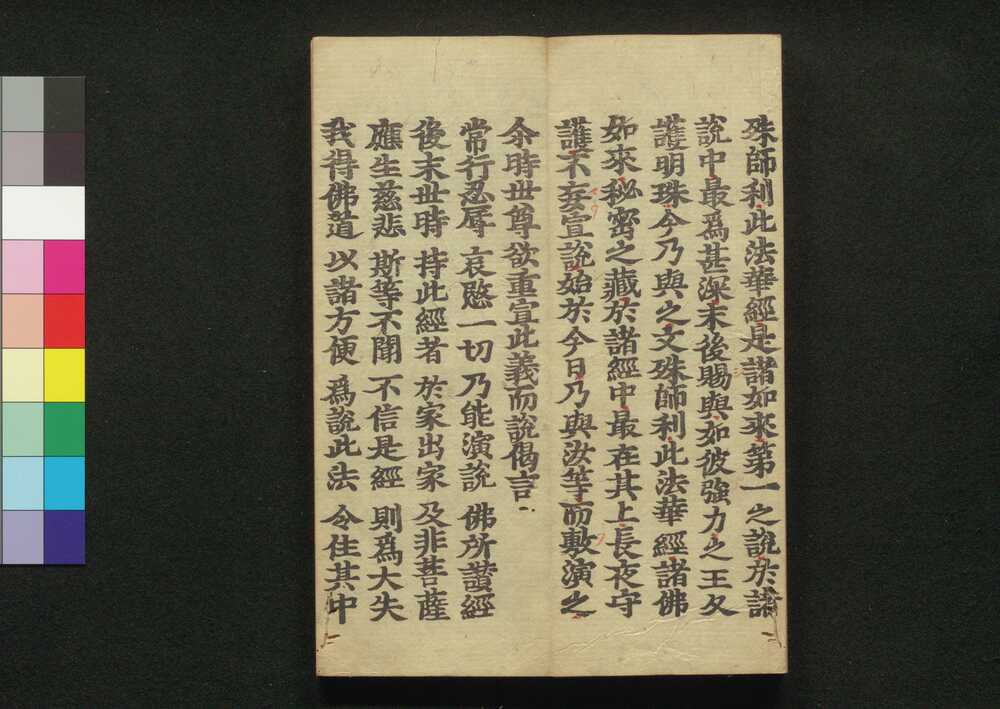 殊師利此法華經是諸如來第一之說於諸
說中最爲甚深末後賜與如彼強力之王久
護明珠今乃與之文殊師利此法華經諸佛
如來秘密之藏於諸經中最在其上長夜守
護不妄宣說始於今日乃與汝等而敷演之
尒時世尊欲重宣此義而說偈言
常行忍辱 哀愍一切 乃能演說 佛所讚經
後末世時 持此經者 於家出家 及非菩薩
應生慈悲 斯等不聞 不信是經 則爲大失
我得佛道 以諸方便 爲說此法 令住其中